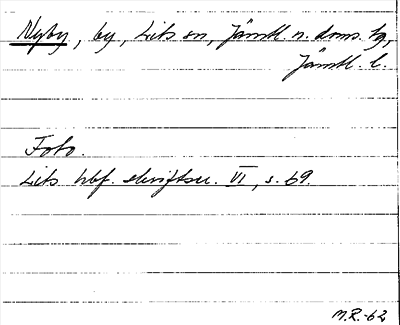 Nyby, by, Lits sn, Jämtl. n. doms. tg,
Jämtl. l.
Foto.
Lits hbf. skriftser. VI, s. 69.
M.R.-62